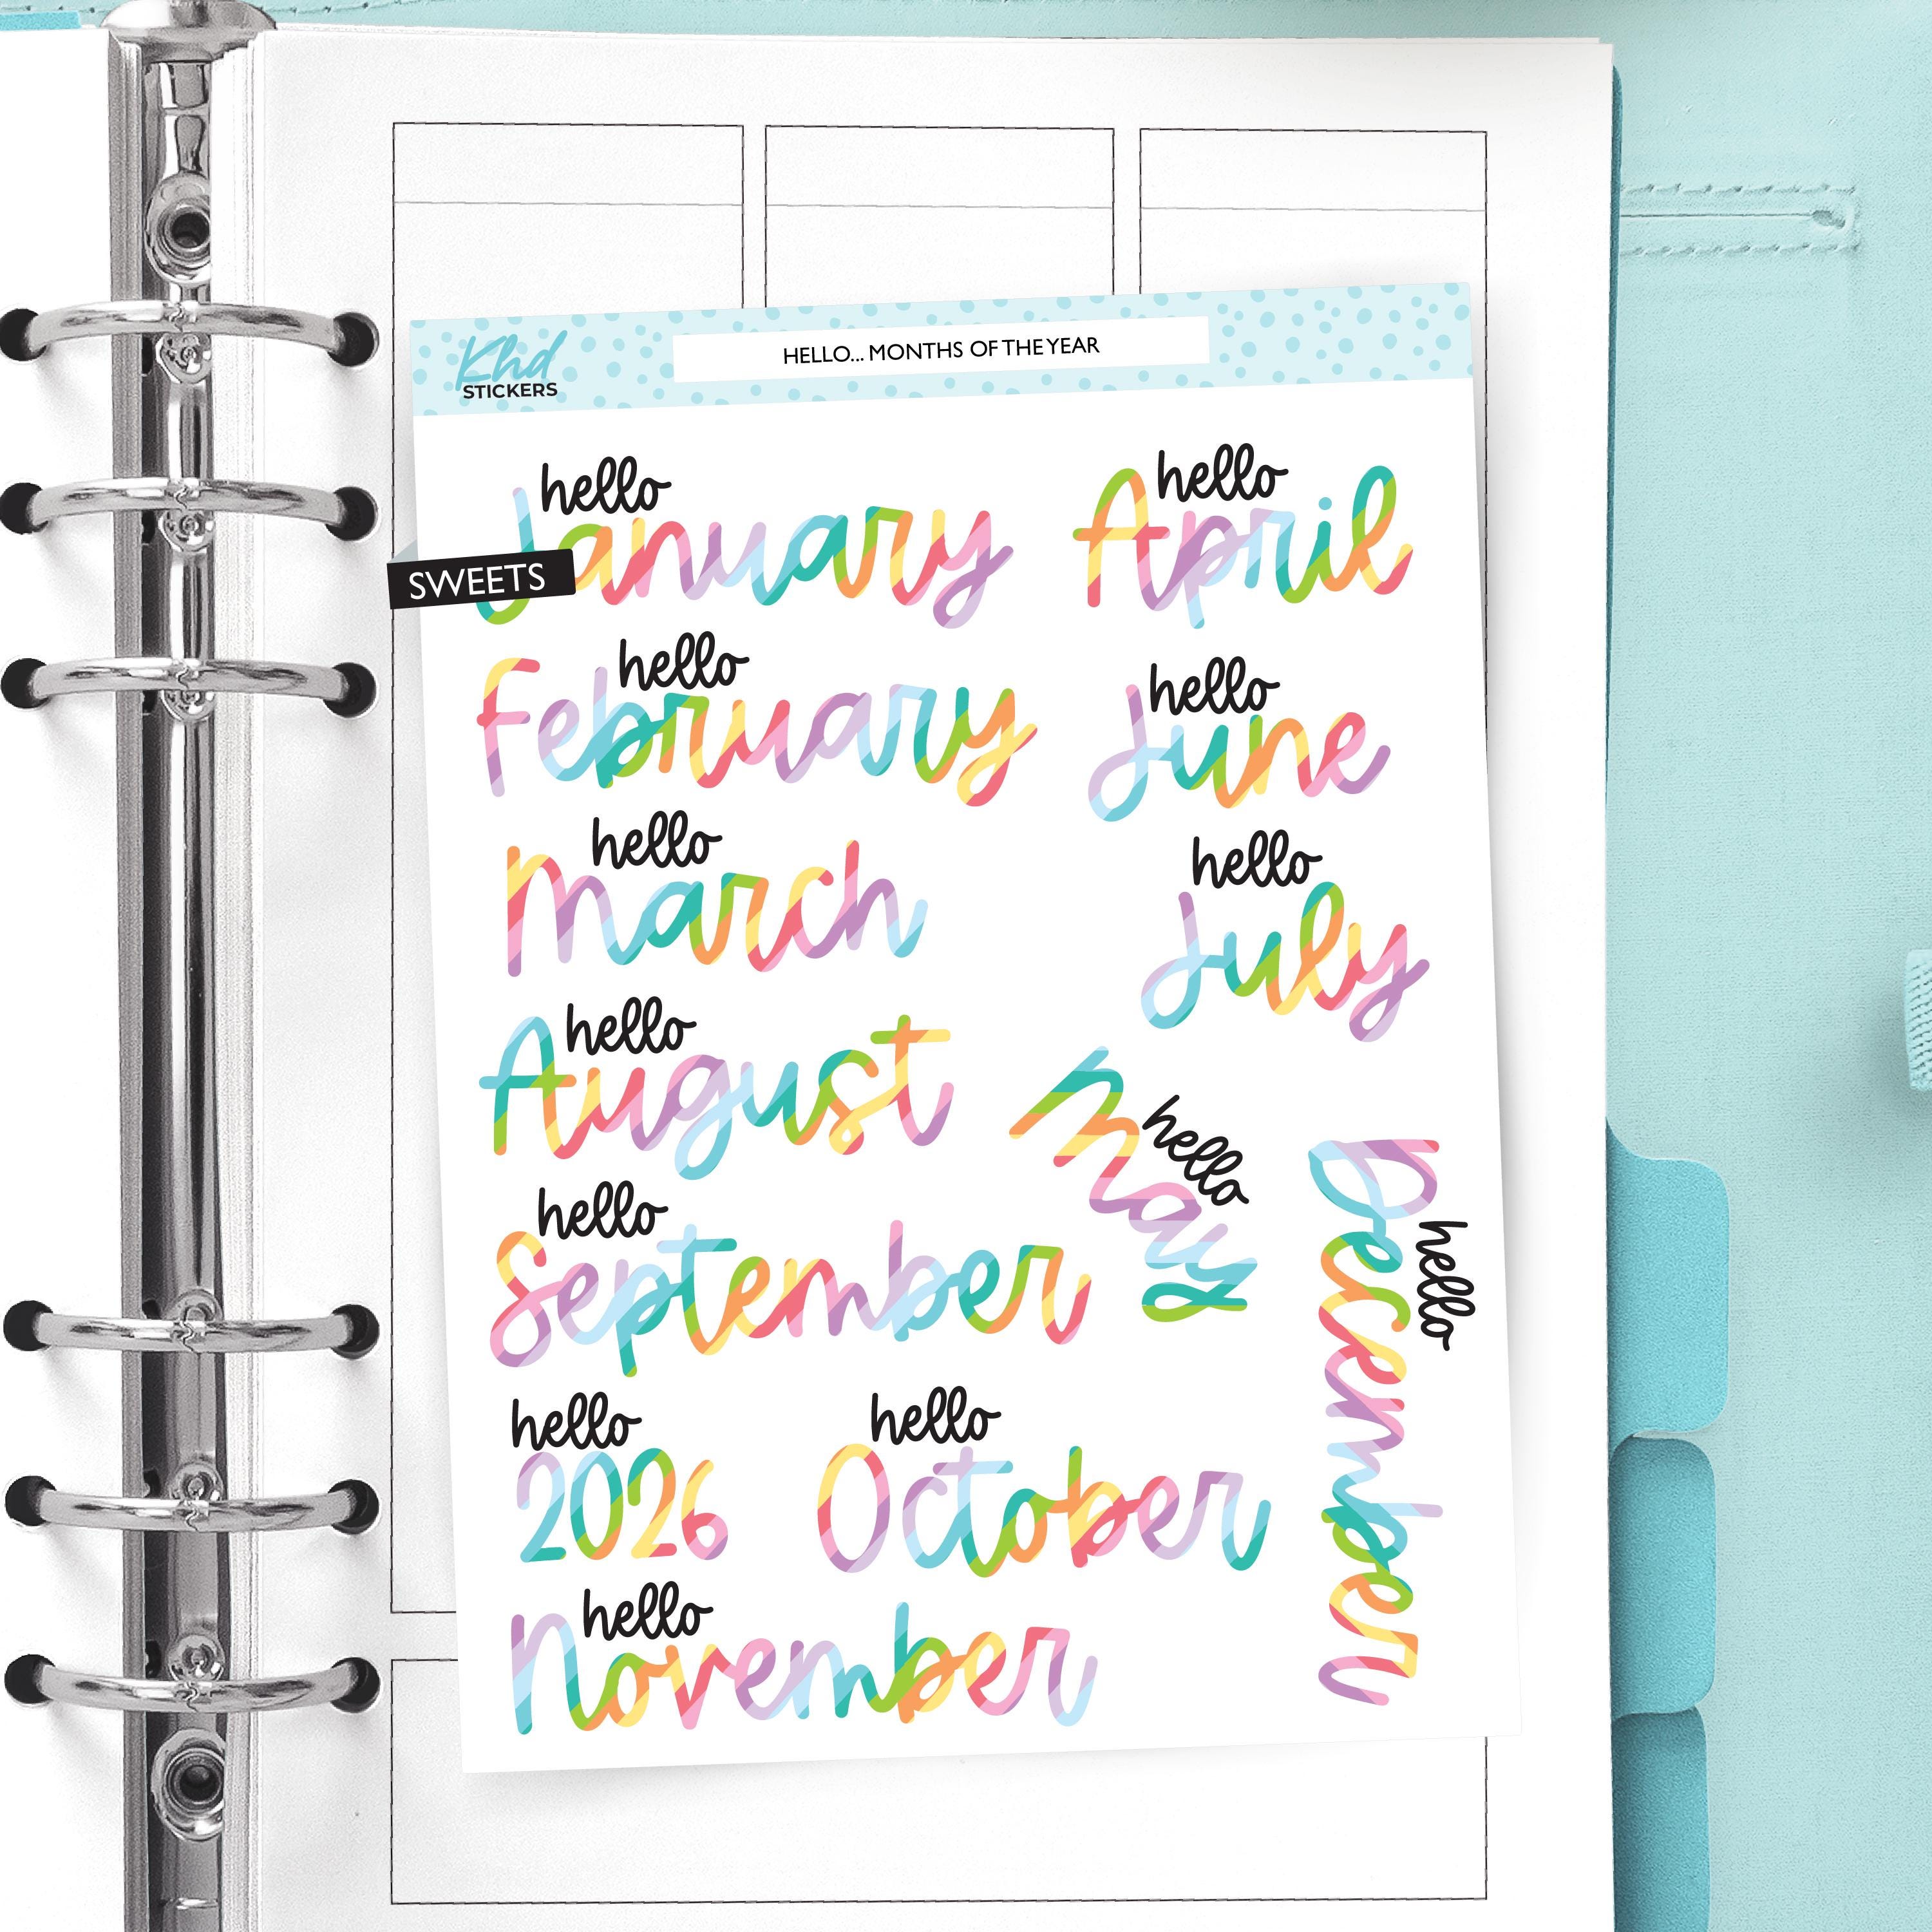 Khd
STICKERS
HELLO... MONTHS OF THE YEAR
SWEETS
hello
January
hello
April
hello
February
hello
June
hello
March
hello
July
hello
August
hello
May
hello
September
hello
December
hello
2026
hello
October
hello
November